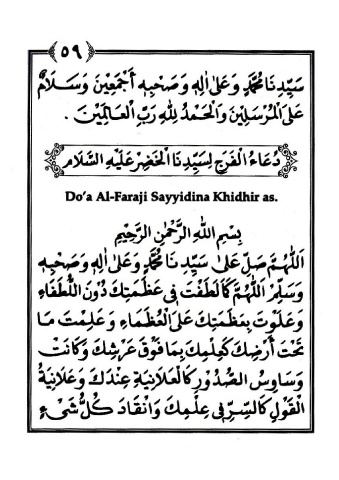 ٥٩
سَيِّدِنَا مُحَمَّدٍ وَعَلَى اٰلِهِ وَصَحْبِهِ أَجْمَعِيْنَ وَسَلَامٌ
عَلَى الْمُرْسَلِيْنَ وَالْحَمْدُ لِلّٰهِ رَبِّ الْعَالَمِيْنَ .
دُعَاءُ الْفَرَجِ لِسَيِّدِنَا الْخَضِرِ عَلَيْهِ السَّلَام
Do'a Al-Faraji Sayyidina Khidhir as.
بِسْمِ اللّٰهِ الرَّحْمٰنِ الرَّحِيْمِ
اَللّٰهُمَّ صَلِّ عَلَى سَيِّدِنَا مُحَمَّدٍ وَعَلَى اٰلِهِ وَصَحْبِهِ
وَسَلِّمْ اَللّٰهُمَّ كَمَا لَطَفْتَ فِى عَظَمَتِكَ دُوْنَ اللُّطَفَاءِ
وَعَلَوْتَ بِعَظَمَتِكَ عَلَى الْعُظَمَاءِ وَعَلِمْتَ مَا
تَحْتَ أَرْضِكَ كَعِلْمِكَ بِمَا فَوْقَ عَرْشِكَ وَكَانَتْ
وَسَاوِسُ الصُّدُوْرِ كَالْعَلَانِيَةِ عِنْدَكَ وَعَلَانِيَةُ
الْقَوْلِ كَالسِّرِّ فِى عِلْمِكَ وَانْقَادَ كُلُّ شَيْءٍ